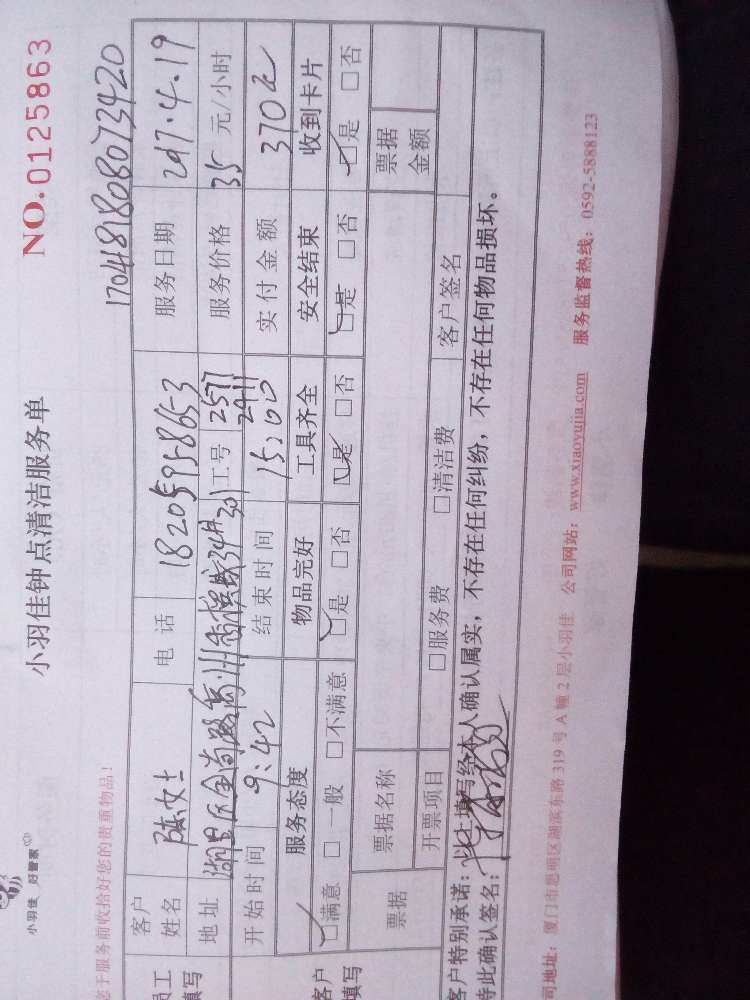 小羽佳 好管家
小羽佳钟点清洁服务单
NO.0125863
您于服务前收拾好您的贵重物品！
1704181808073420
员工填写
客户姓名 陈女士 电话 18205958653 服务日期 2017.4.19
地址 湖里区金尚路 34# 301 工号 2577 2411 服务价格 35 元/小时
开始时间 9:42 结束时间 15:00 实付金额 370元
客户填写
服务态度 物品完好 工具齐全 安全结束 收到卡片
□满意 □一般 □不满意 □是 □否 □是 □否 □是 □否 □是 □否
票据 票据名称 票据金额
开票项目 □服务费 □清洁费 客户签名
客户特别承诺：以上填写经本人确认属实，不存在任何纠纷，不存在任何物品损坏。
特此确认签名：
司地址：厦门市思明区湖滨东路 319 号 A 幢 2 层小羽佳 公司网站：www.xiaoyujia.com 服务监督热线：0592-5888123